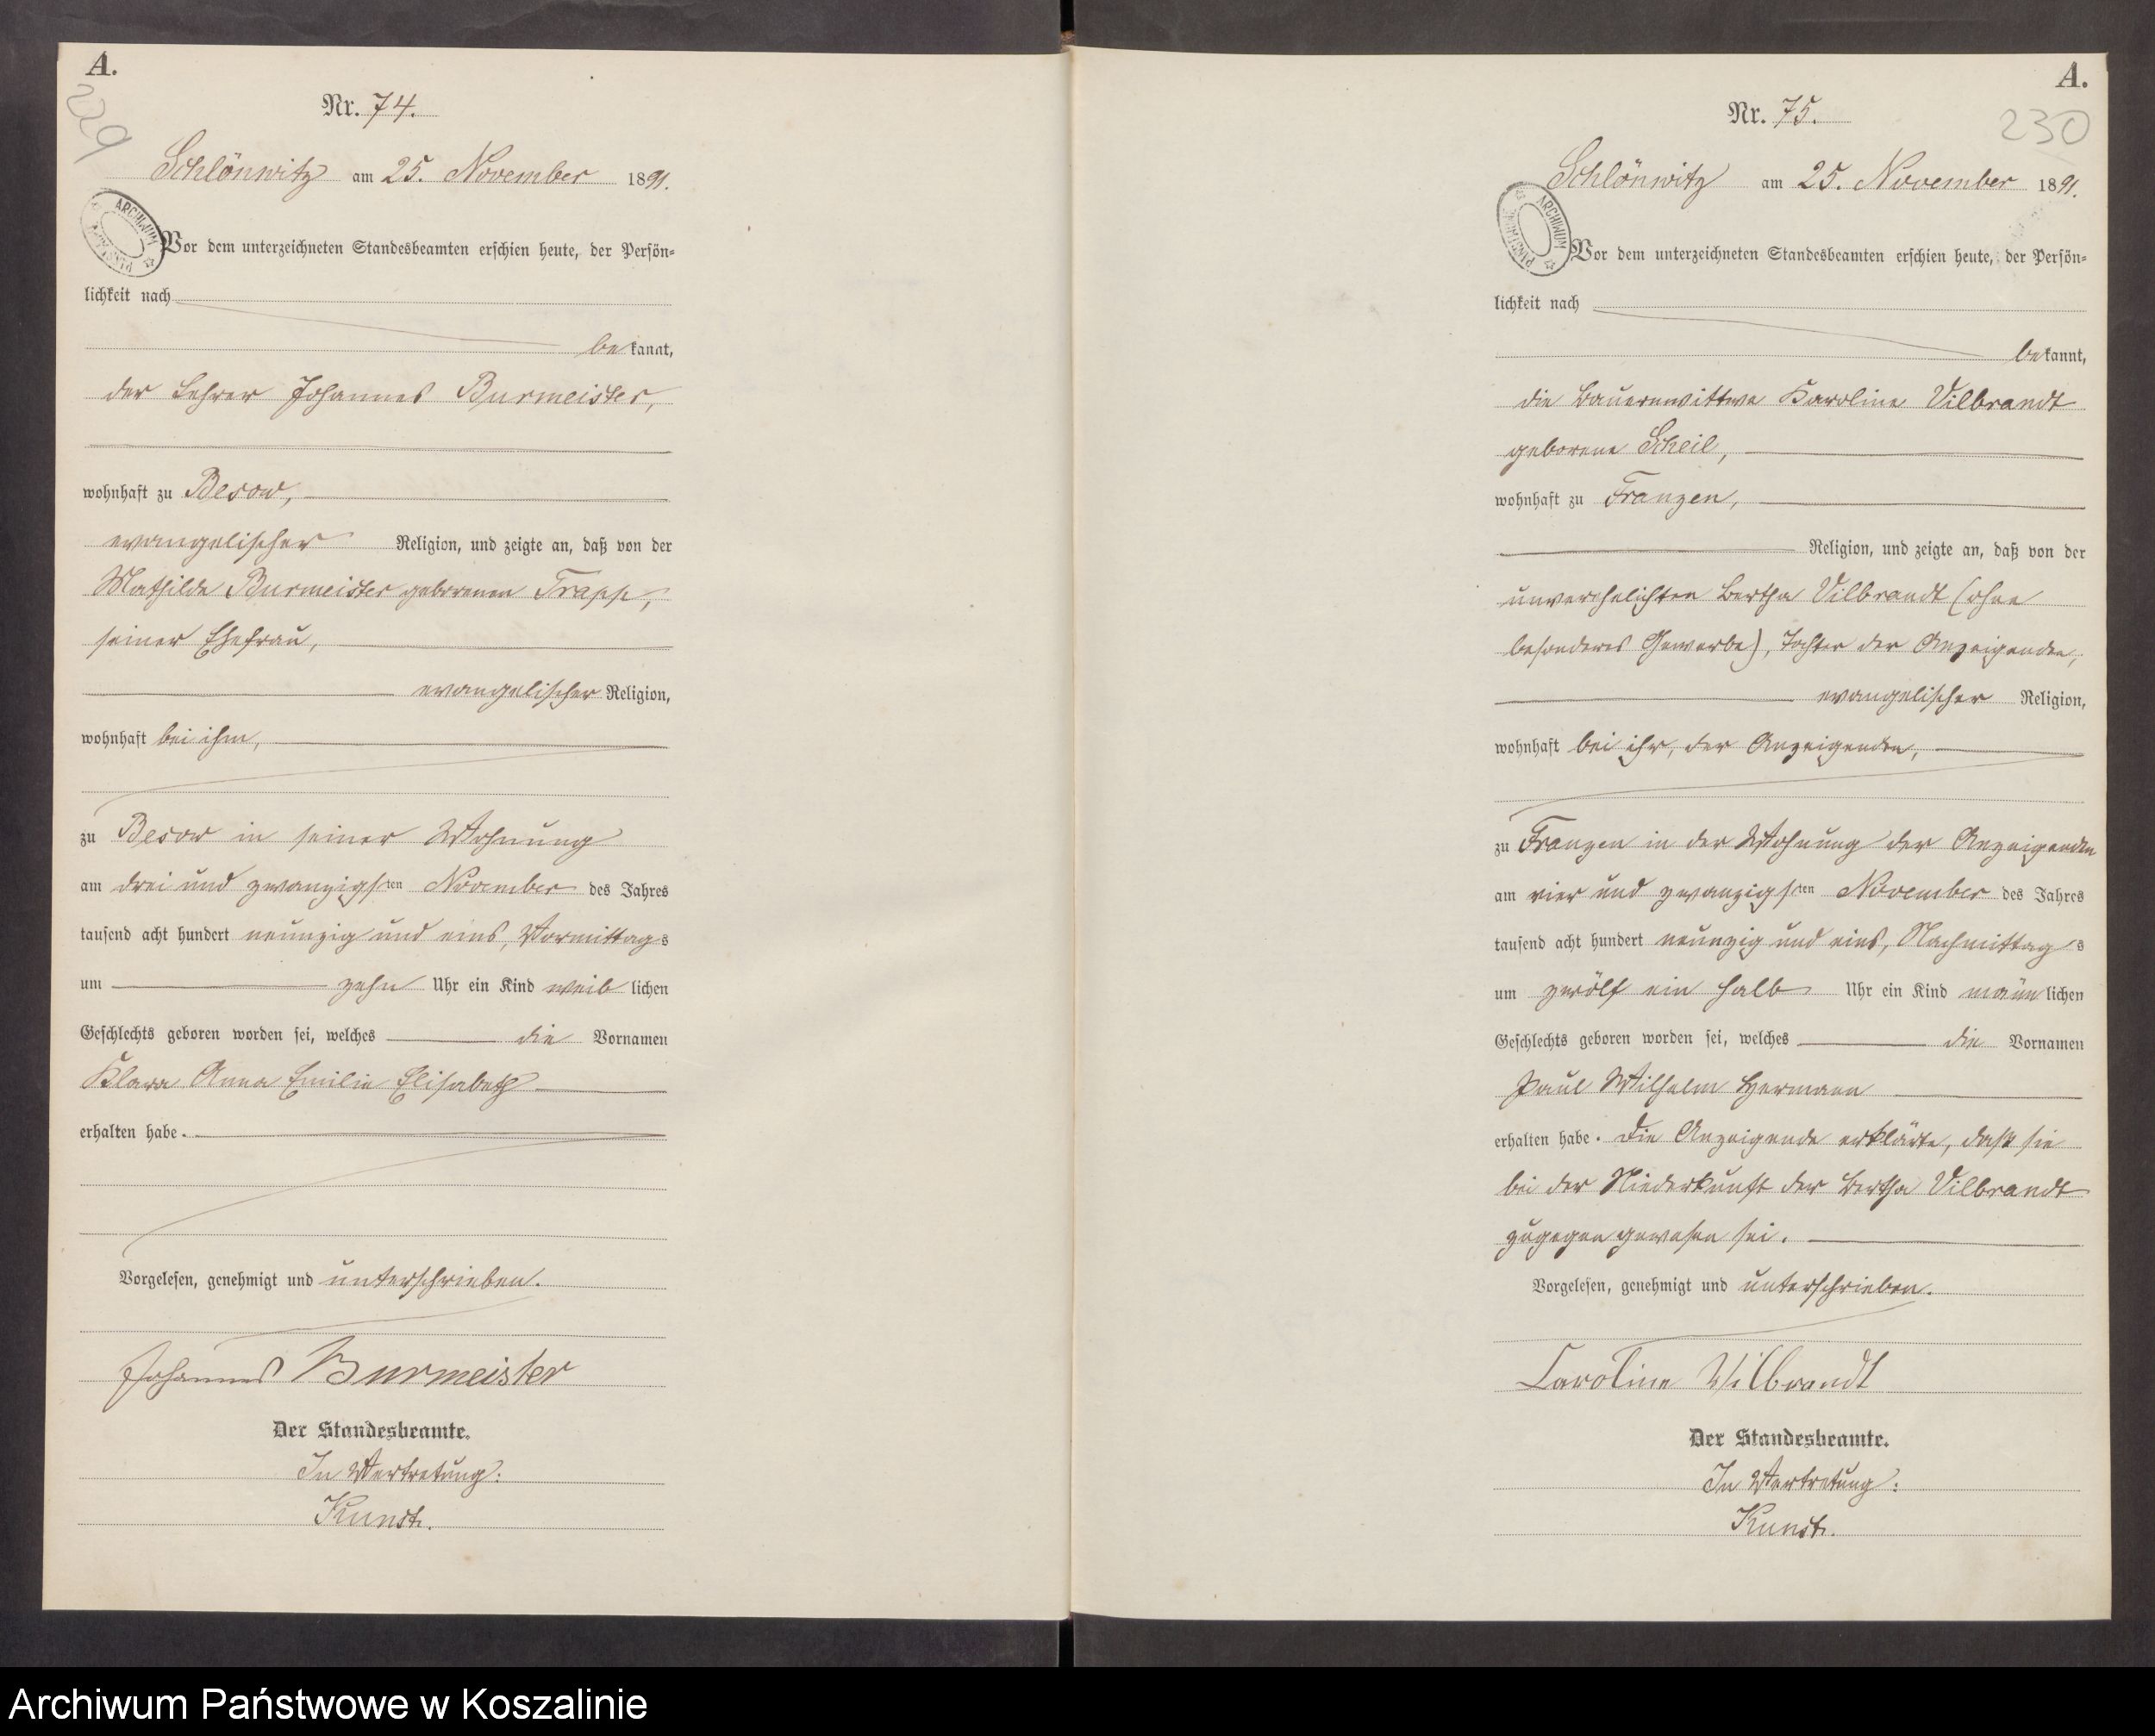 A.
229
Nr. 74.
Schlönwitz am 25. November 1891.
ARCHIWUM PAŃSTWOWE
Vor dem unterzeichneten Standesbeamten erschien heute, der Persön-
lichkeit nach
bekannt,
der Lehrer Johannes Burmeister,
wohnhaft zu Besow,
evangelischer Religion, und zeigte an, daß von der
Mathilde Burmeister geborenen Trapp,
seiner Ehefrau,
evangelischer Religion,
wohnhaft bei ihm,
zu Besow in seiner Wohnung
am drei und zwanzigsten November des Jahres
tausend acht hundert neunzig und eins, Vormittags
um zehn Uhr ein Kind weiblichen
Geschlechts geboren worden sei, welches die Vornamen
Klara Anna Emilie Elisabeth
erhalten habe.
Vorgelesen, genehmigt und unterschrieben.
Johannes Burmeister
Der Standesbeamte.
In Vertretung:
Kunst.
A.
230
Nr. 75.
Schlönwitz am 25. November 1891.
ARCHIWUM PAŃSTWOWE
Vor dem unterzeichneten Standesbeamten erschien heute, der Persön-
lichkeit nach
bekannt,
die Bauernwittwe Karoline Vilbrandt
geborene Scheil,
wohnhaft zu Franzen,
Religion, und zeigte an, daß von der
unverehelichten Bertha Vilbrandt (ohne
besonderes Gewerbe), Tochter der Anzeigenden,
evangelischer Religion,
wohnhaft bei ihr, der Anzeigenden,
zu Franzen in der Wohnung der Anzeigenden
am vier und zwanzigsten November des Jahres
tausend acht hundert neunzig und eins, Nachmittags
um zwölf ein halb Uhr ein Kind männlichen
Geschlechts geboren worden sei, welches die Vornamen
Paul Wilhelm Hermann
erhalten habe. Die Anzeigende erklärte, daß sie
bei der Niederkunft der Bertha Vilbrandt
zugegen gewesen sei.
Vorgelesen, genehmigt und unterschrieben.
Caroline Vilbrandt
Der Standesbeamte.
In Vertretung:
Kunst.
Archiwum Państwowe w Koszalinie